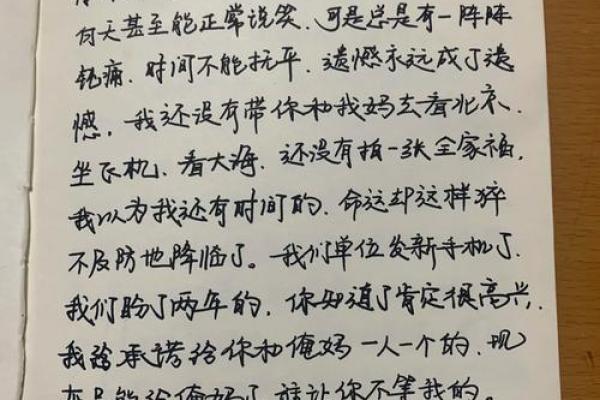 何天甚至能正常说笑．可是总是有一阵阵
钝痛．时间不能抚平．遗憾永远成了遗
憾．我还没有带你和我妈去看北京、
坐飞机、看大海．还没有拍一张全家福．
我以为我还有时间的．命运却这样猝
不及防地降临了。我们单位发新手机了．
我们盼了两年的．你知道了肯定很高兴．
我承诺给你和俺妈一人一个的．现
在只能给俺妈了．谁让你不等我的。